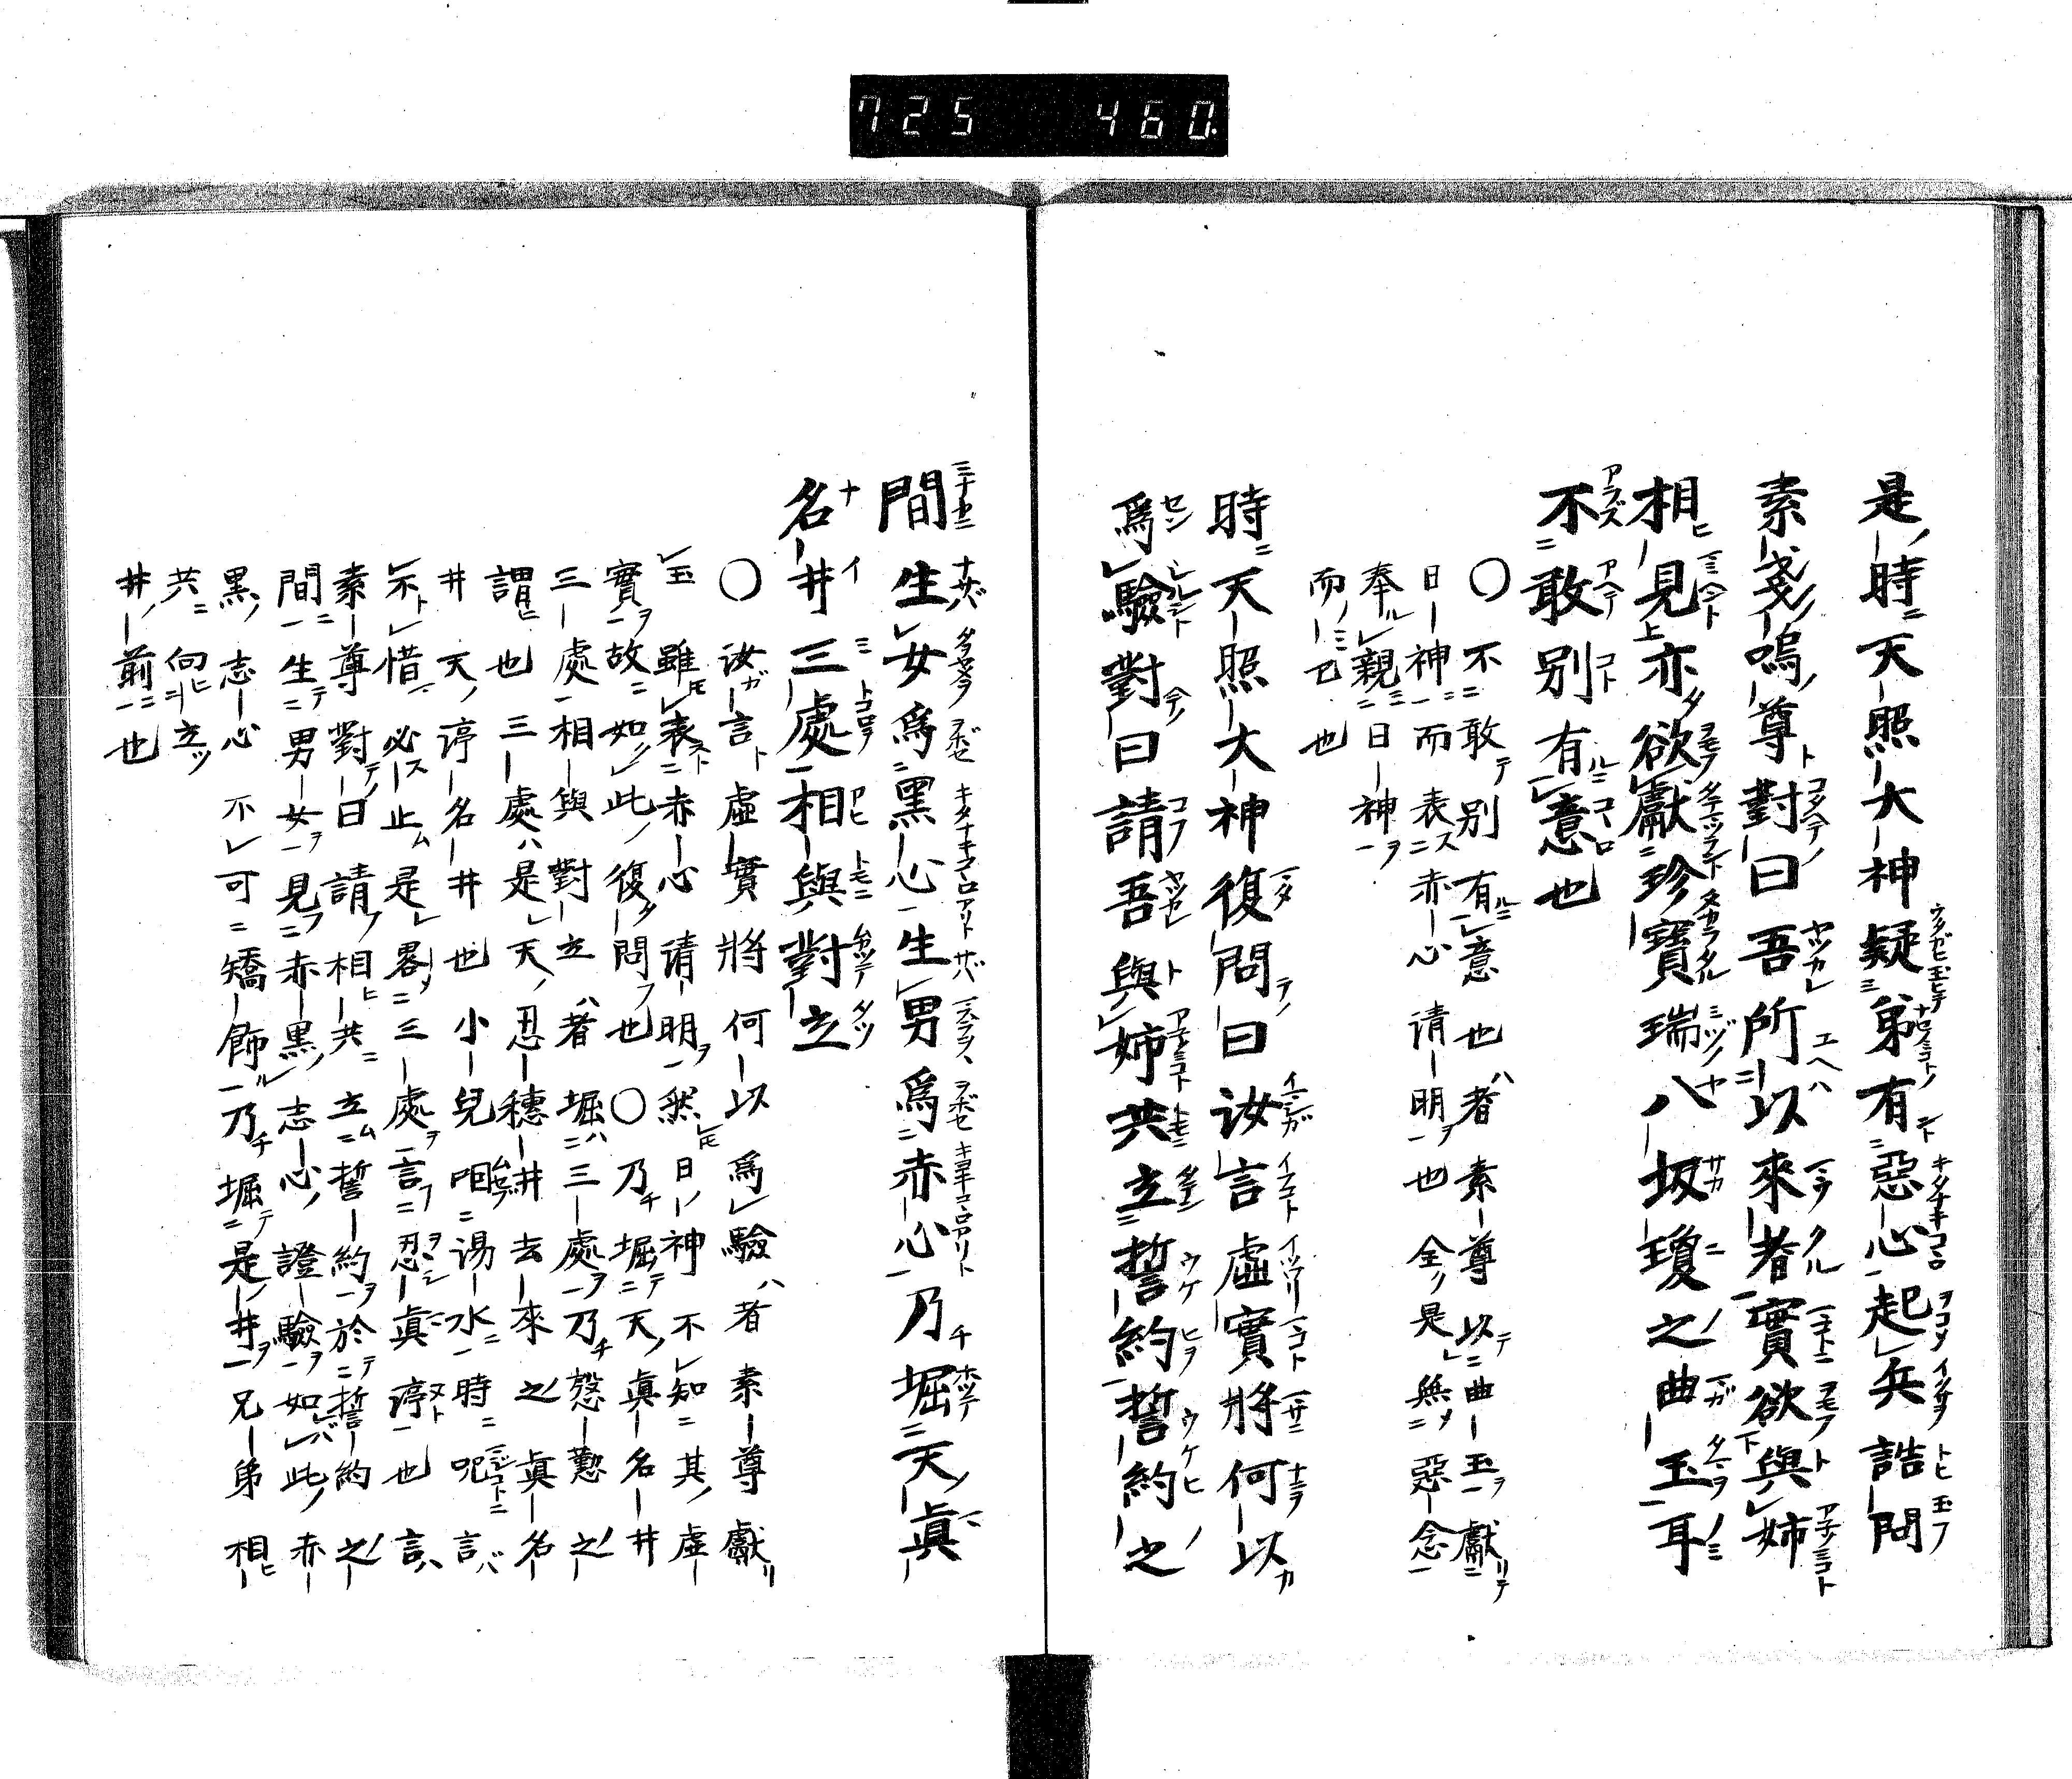 725 460
是時天照大神疑弟有惡心起兵詰問
素戔嗚尊對曰吾所以來者實欲與姉
相見亦欲獻珍寶瑞八坂瓊之曲玉耳
不敢別有意也
〇不敢別有意也者素尊以曲玉獻
日神而表赤心请明也全是無惡念
奉親日神
而已也
時天照大神復問曰汝言虛實將何以
爲驗對曰請吾與姉共立誓約誓約之
間生女爲黑心生男爲赤心乃堀天眞
名井三處相與對立
〇汝言虛實將何以爲驗者素尊獻
玉雖表赤心请明然日神不知其虛
實故如此復問也〇乃堀天眞名井
三處相與對立者堀三處乃慇懃之
謂也三處是天忍穗井去來之眞名
井天渟名井也小兒咀湯水時呪言
不惜必止是畧三處言忍眞渟也言
素尊對曰請相共立誓約於誓約之
間生男女見赤黑志心證驗如此赤
黑志心不可矯飾乃堀是井兄弟相
共向立
井前也